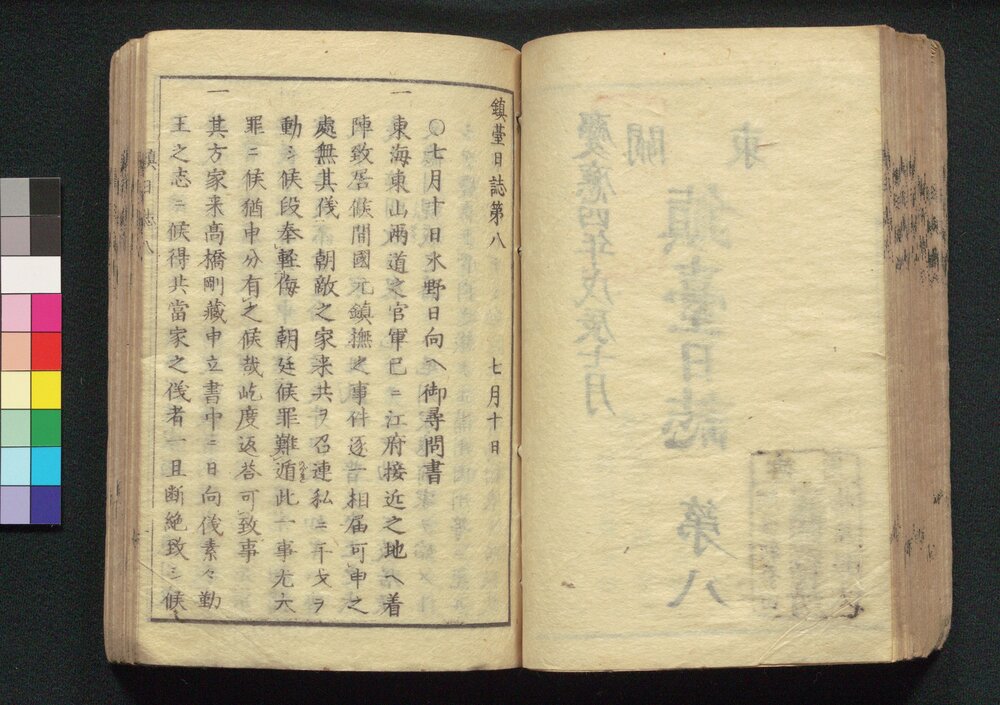 東關
鎮臺日誌 第八
慶應四年戊辰七月
鎮臺日誌第八 七月十日
○七月十日水野日向ヘ御尋問書
一東海東山兩道之官軍已ニ江府接近之地ヘ着
陣致居候間國元鎮撫之事件逐一相届可申之
處無其儀 朝敵之家来共ヲ召連私ニ干戈ヲ
動シ候段奉軽侮 朝廷候罪難遁此一事尤大
罪ニ候猶申分有之候哉屹度返答可致事
一其方家来髙橋剛藏申立書中ニ日向儀素々勤
王之志ニ候得共當家之儀者一旦断絶致シ候
鎮日誌八